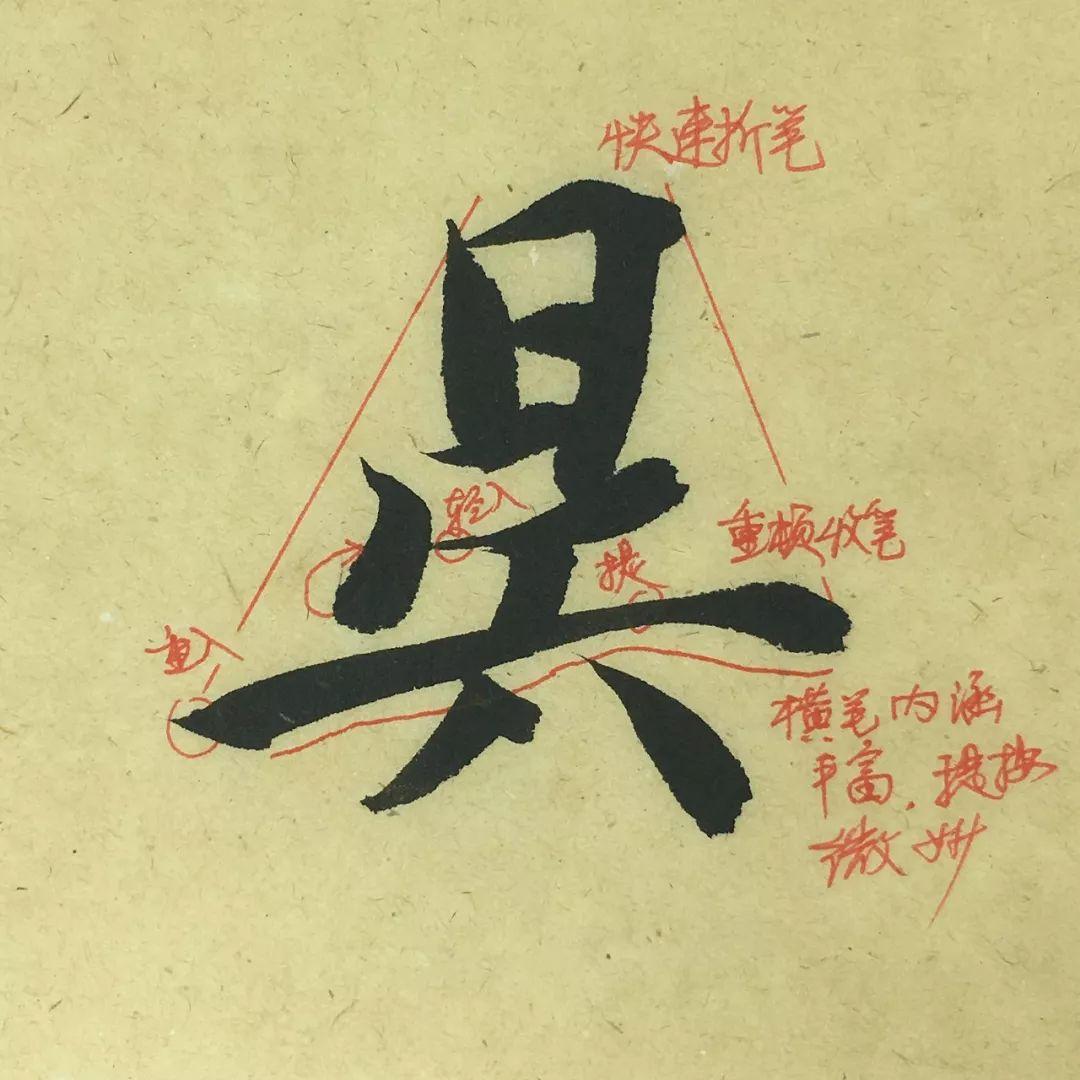 快速折笔
異
轻入
重顿收笔
提
直入
横笔内涵
丰富，提按
微妙